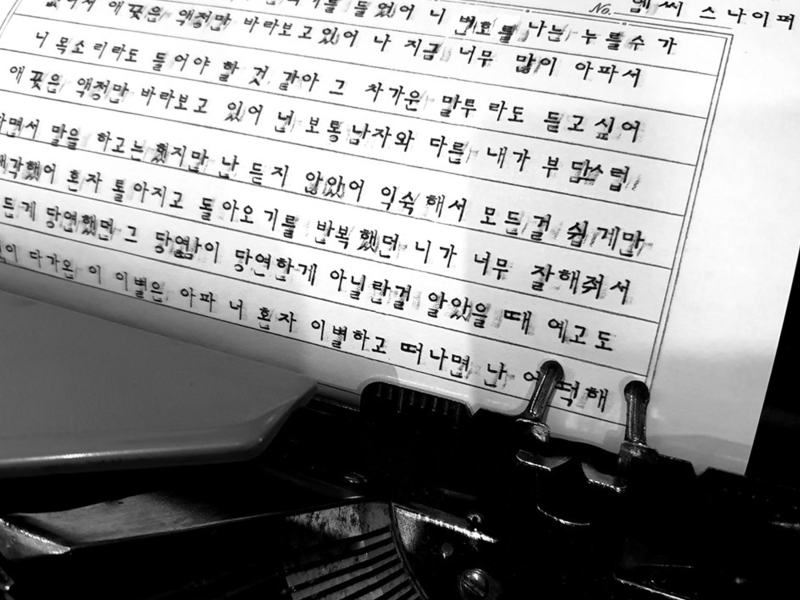 No. 엠 씨 스나이퍼
들었어 니 번호를 나는 누를수 가
서 애꿎은 액정만 바라보고있어 나 지금 너무 많이 아파서
니 목소리라도 들어야 할 것 같아 그 차가운 말투 라도 듣고싶어
애꿎은 액정만 바라보고 있어 넌 보통남자와 다른 내가 부담스럽
다면서 말을 하고는했지만 난 듣지 않았어 익숙해서 모든걸 쉽게만
생각했어 혼자 토아지고 돌아오기를 반복했던 니가 너무 잘해줘서
든게 당연했던 그 당연함이 당연한게 아닐란걸 알았을 때 예고도
이 다가온 이 이별은 아파 너 혼자 이별하고 떠나면 난 어떡해